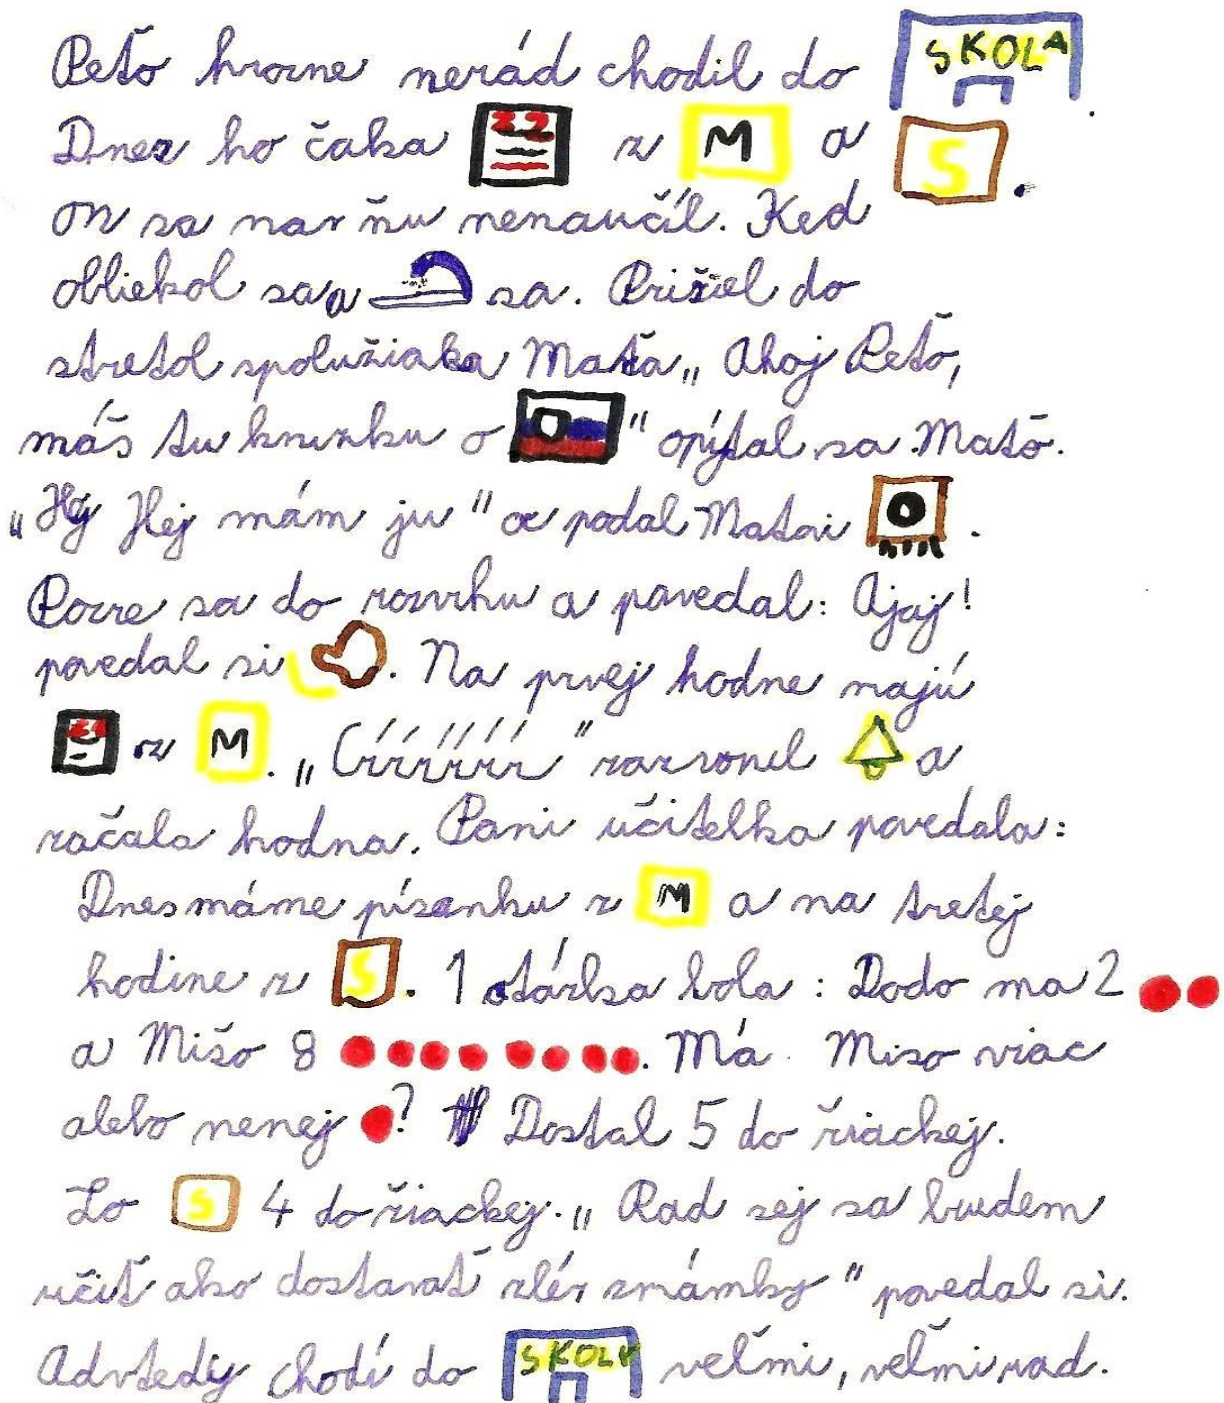 Peťo hrozne nerád chodil do SKOLA.
Dnez ho čaka 22 z M a S.
on sa naz ňu nenaučil. Ked
obliekol sa a sa. Prišiel do
stretol spolužiaka Maťa „ Ahoj Peťo,
máš tu knizku o " opýtal sa Maťo.
„ Hej mám ju" a podal Maťovi .
Pozre sa do rozvrhu a povedal: Ajaj!
povedal si . Na prvej hodne majú
z M. „Crrrrrrr" zazvonil a
začala hodna. Pani učitelka povedala:
Dnes máme písanku z M a na tretej
hodine z S. 1 otázka bola : Dodo ma 2
a Mišo 8 . Má Miso viac
alebo nenej ? Dostal 5 do žiackej.
Zo S 4 do žiackej. „ Rad sej sa budem
učiť ako dostavať zlé známky" povedal si.
Advtedy chodí do SKOLA veľmi, veľmi rad.